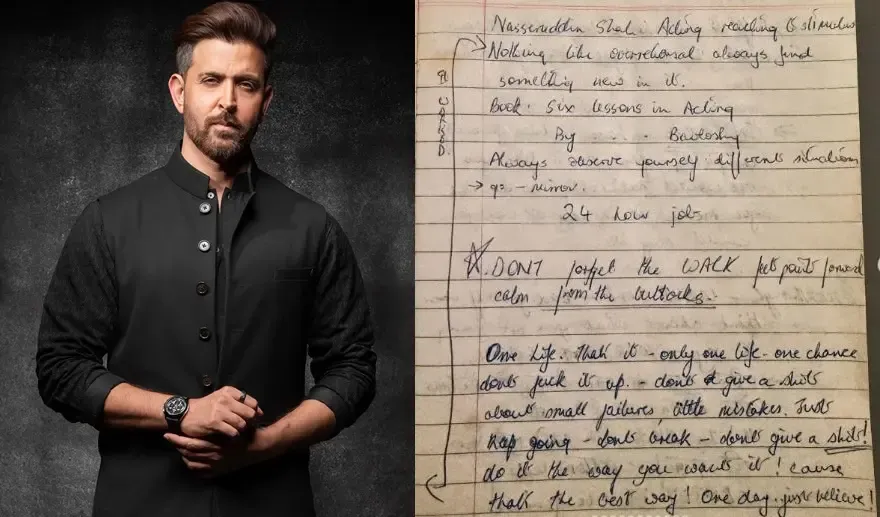 Nasseruddin Shah: Acting reacting to stimulus
Nothing like overrehersal always find
something new in it.
Book: Six lessons in Acting
By . . .
Always observe yourself different situations
→ – mirror.
24 hour job
WORKED
☆. DONT forget the WALK feet point forward
calm from the buttocks.
One Life. that it - only one life - one chance
dont fuck it up. - dont give a shit
about small failures, little mistakes. Just
Keep going - dont break - dont give a shit!
do it the way you want it! cause
that the best way! One day. just believe!